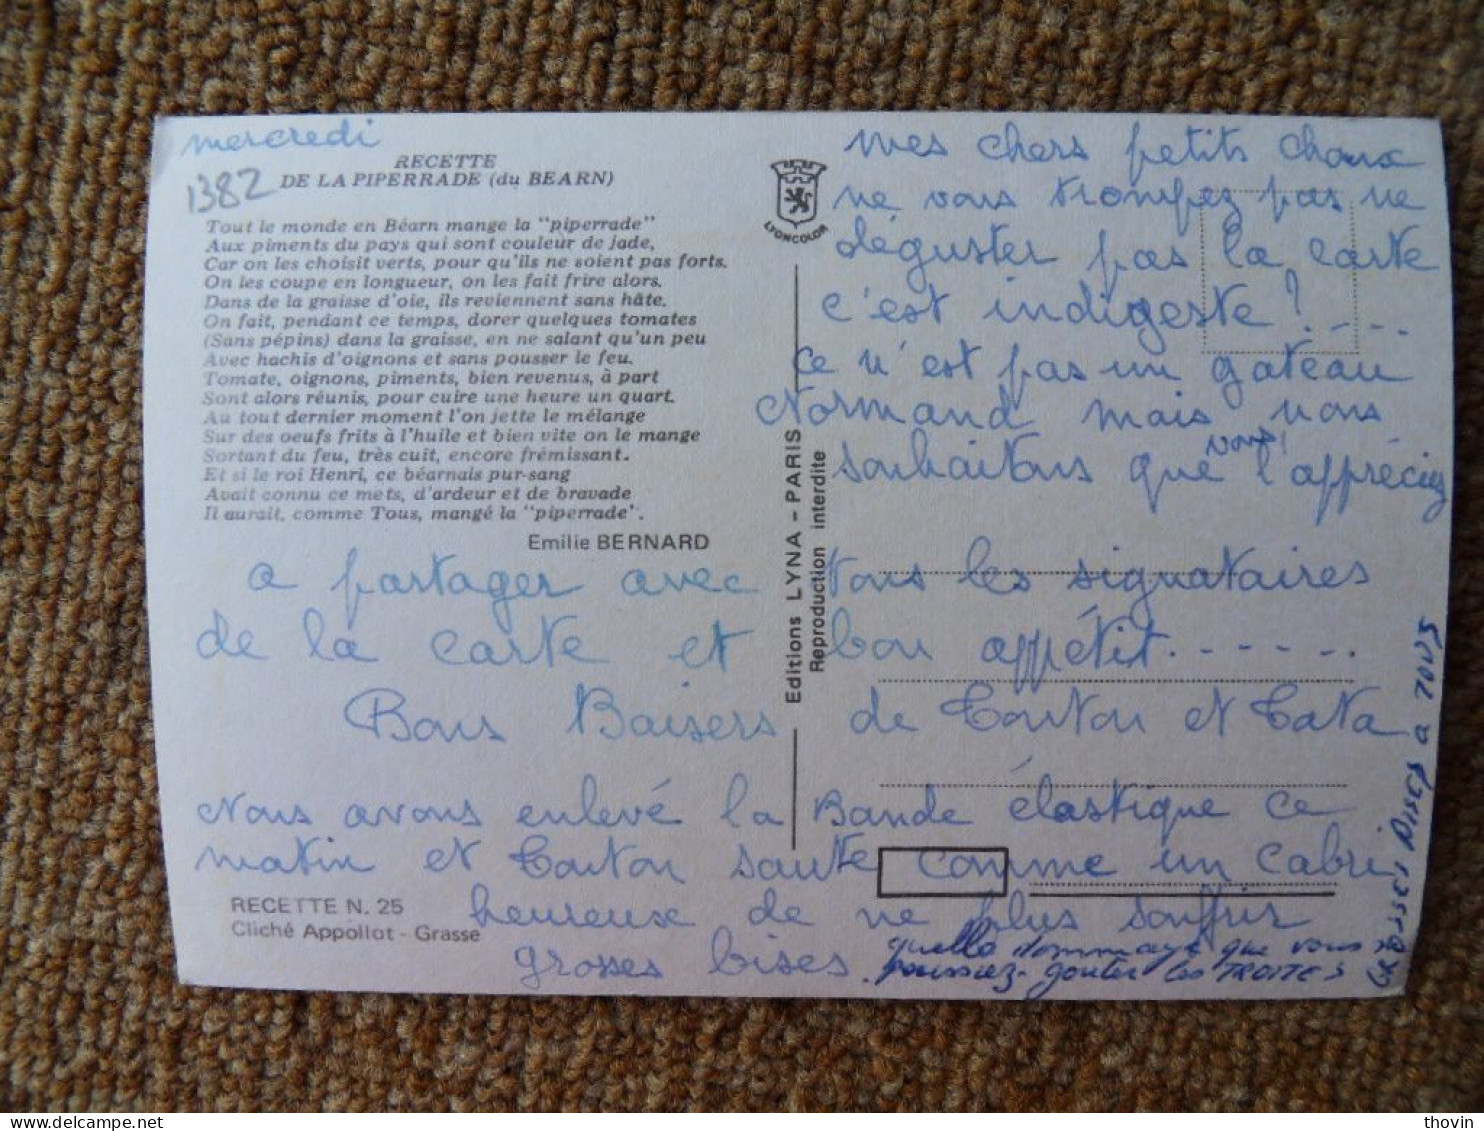 mercredi
1382
RECETTE
DE LA PIPERRADE (du BEARN)
Tout le monde en Béarn mange la "piperrade"
Aux piments du pays qui sont couleur de jade,
Car on les choisit verts, pour qu'ils ne soient pas forts.
On les coupe en longueur, on les fait frire alors.
Dans de la graisse d'oie, ils reviennent sans hâte.
On fait, pendant ce temps, dorer quelques tomates
(Sans pépins) dans la graisse, en ne salant qu'un peu
Avec hachis d'oignons et sans pousser le feu.
Tomate, oignons, piments, bien revenus, à part
Sont alors réunis, pour cuire une heure un quart.
Au tout dernier moment l'on jette le mélange
Sur des oeufs frits à l'huile et bien vite on le mange
Sortant du feu, très cuit, encore frémissant.
Et si le roi Henri, ce béarnais pur-sang
Avait connu ce mets, d'ardeur et de bravade
Il aurait, comme Tous, mangé la "piperrade".
Emilie BERNARD
LYONCOLOR
Editions LYNA - PARIS
Reproduction interdite
mes chers petits choux
ne vous trompez pas ne
déguster pas la carte
c'est indigeste ! . - - -
ce n'est pas un gateau
Normand mais nous
souhaitons que vous l'appréciez
a partager avec tous les signataires
de la carte et bon appétit. - - - - - .
Bons Baisers de Tonton et Tata
Nous avons enlevé la Bande élastique ce
matin et Tonton saute comme un cabri
heureuse de ne plus souffrir
grosses bises.
quelle dommage que vous ne
poussiez - gouter les TROITES
GROSSES BISES A TOUS
RECETTE N. 25
Cliché Appollot - Grasse
thovin